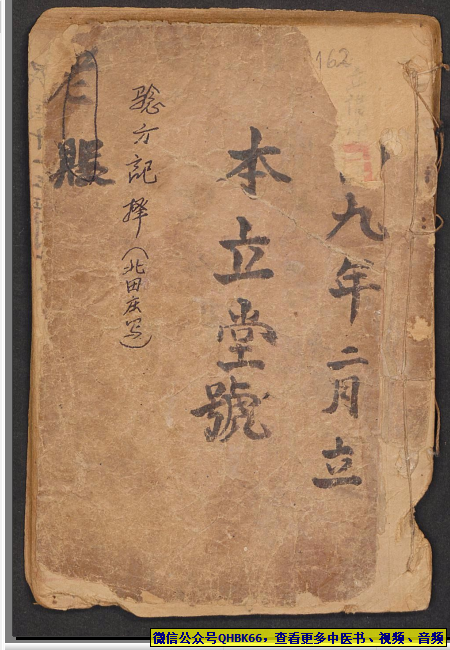 162
九年二月立
本立堂號
驗方記擇(北田庄寫)
賬
微信公众号QHBK66，查看更多中医书、视频、音频